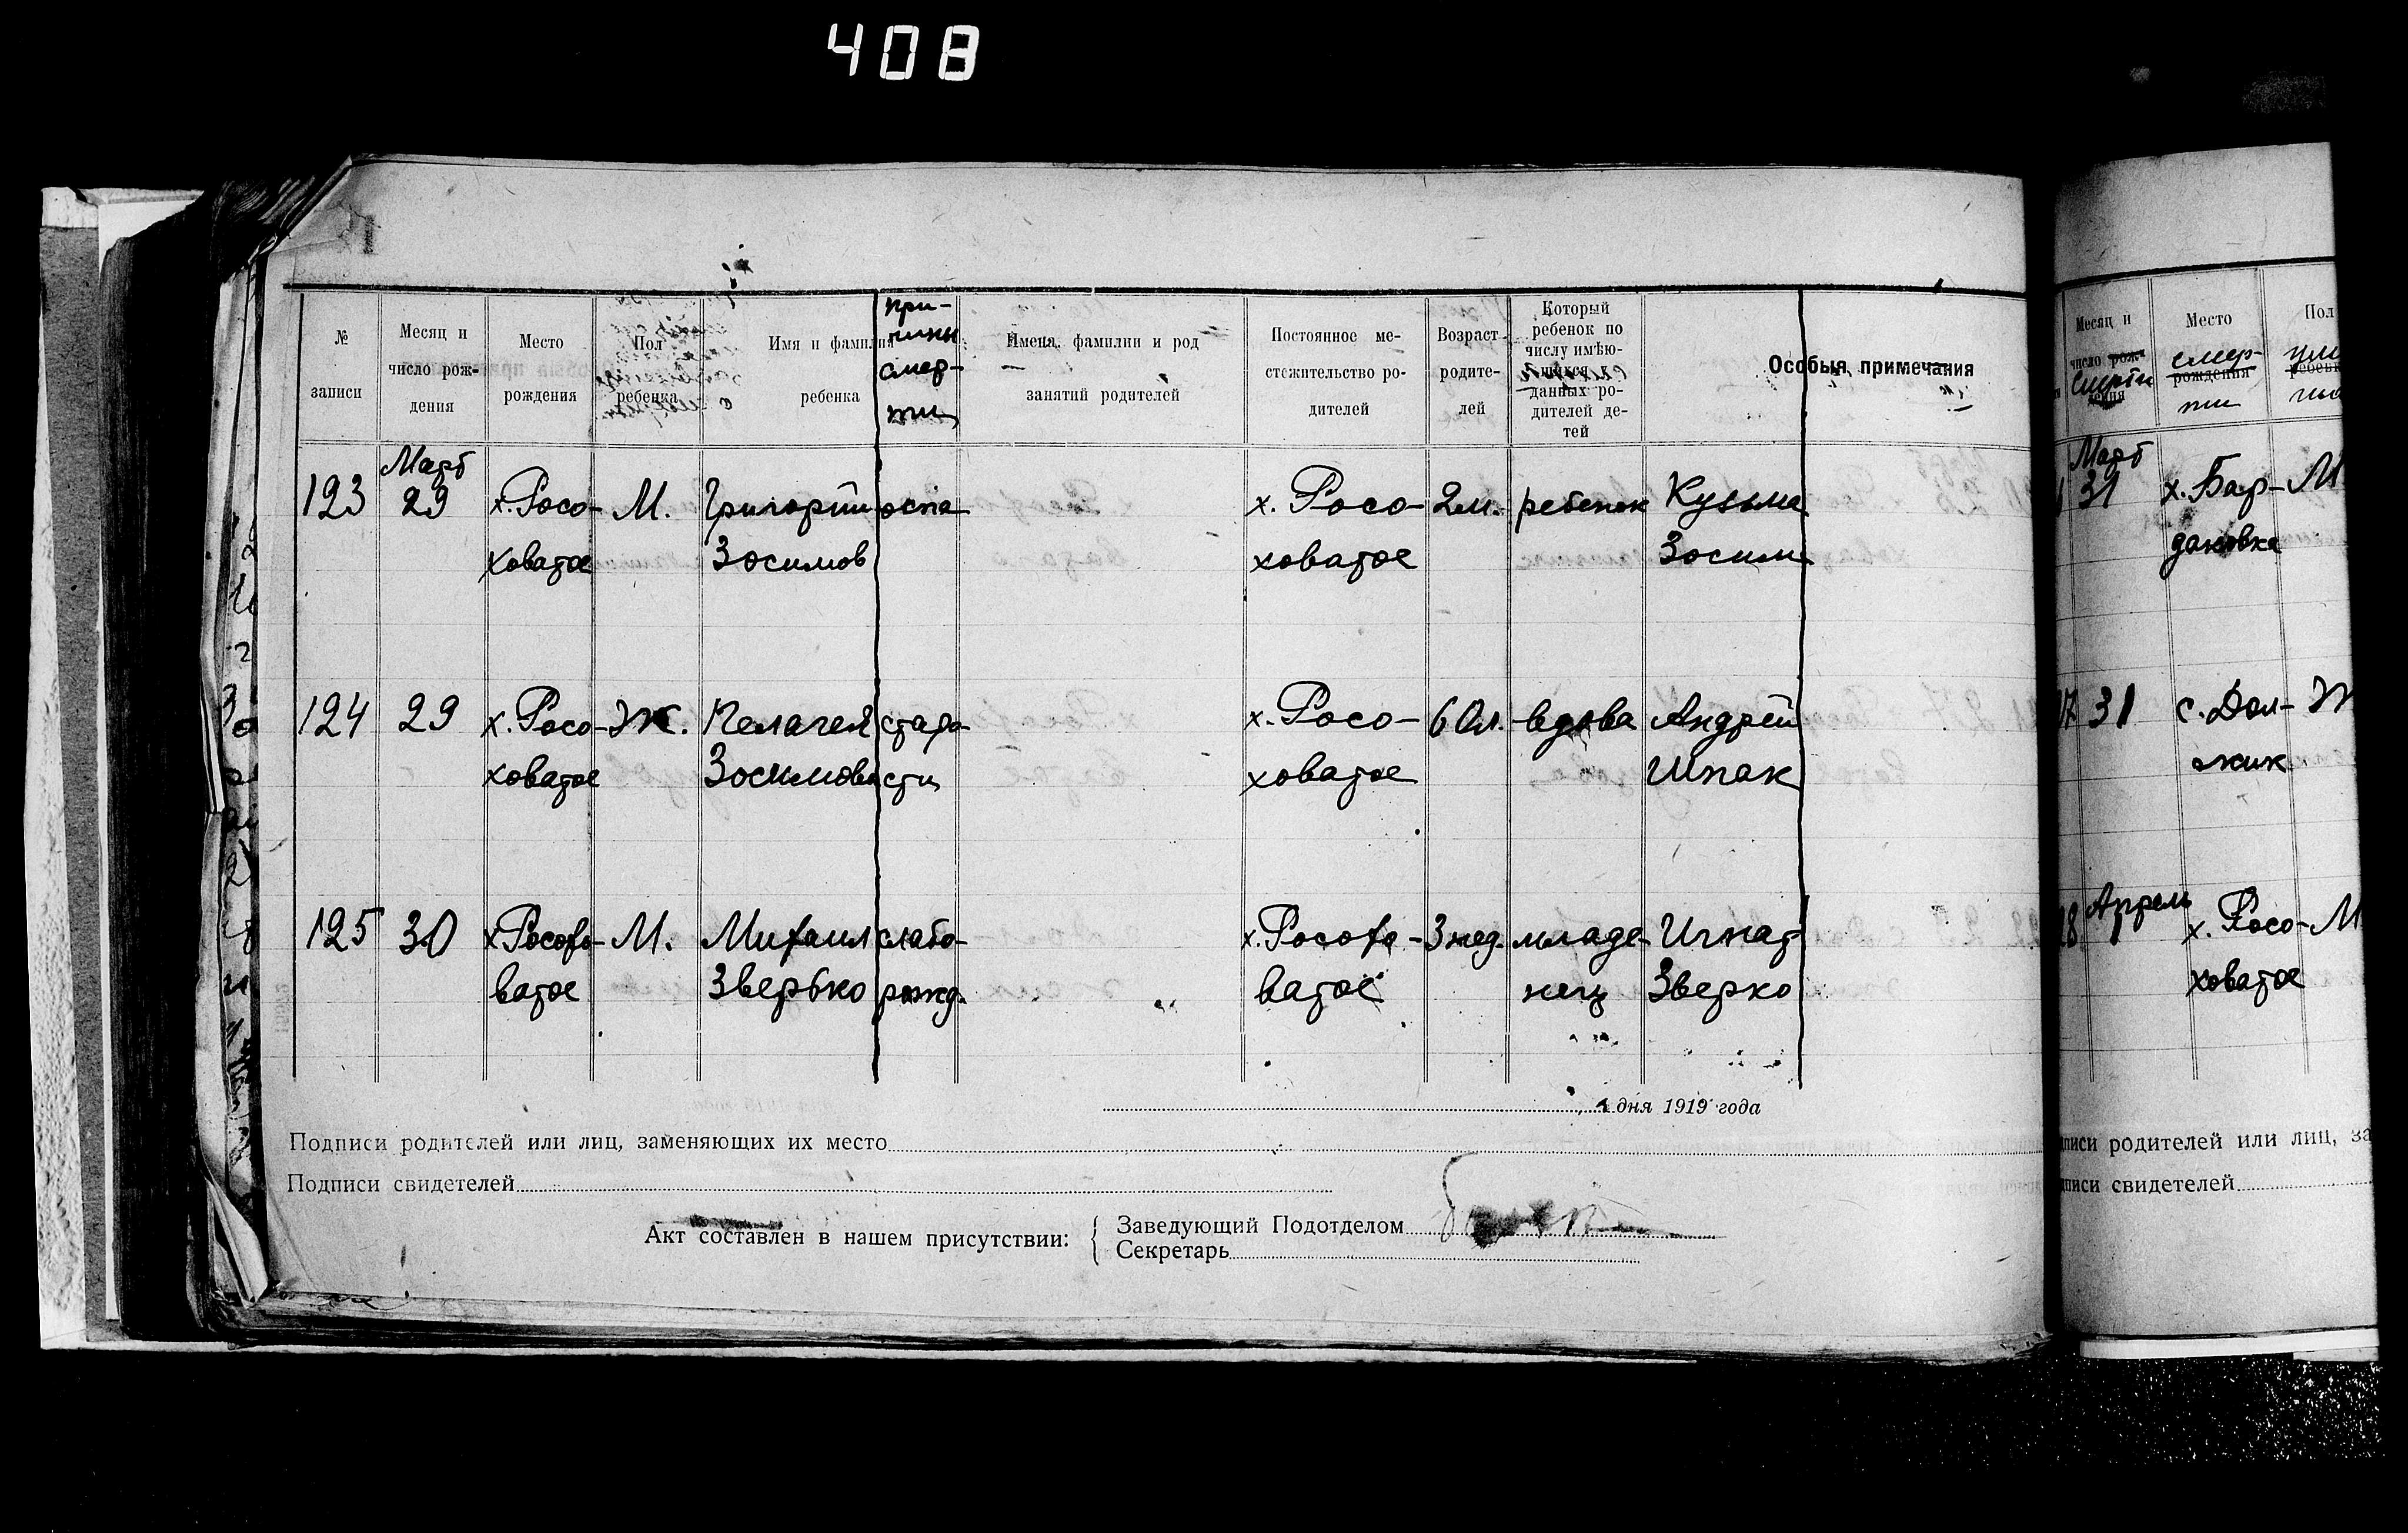 408
№ записи
Месяц и число рождения
Место рождения
Пол ребенка
Имя и фамилия ребенка
причины смерти
Имена, фамилии и род занятий родителей
Постоянное местожительство родителей
Возраст родителей
Который ребенок по числу имѣющихся у данных родителей детей
Особыя примечания
Март
123 29 х. Росо- М. Григорій оспа х. Росо- 2м. ребенок Кузьма
ховатое Зосимов ховатое Зосим
124 29 х. Росо- Ж. Пелагея старо- х. Росо- 60л. вдова Андрей
ховатое Зосимова сти ховатое Шпак
125 30 х Росохо- М. Михаил слабо- х. Росохо- 3 нед. младе- Игнат
ватое Зверько рожд. ватое нец Зверко
дня 1919 года
Подписи родителей или лиц, заменяющих их место
Подписи свидетелей
Акт составлен в нашем присутствии:
Заведующий Подотделом
Секретарь
Месяц и число рождения смерти
Место рождения смерти
Пол
Март
31 х. Бар- М
даковка
31 с. Дол- Ж
жик
Апрель
1 х. Росо- М
ховатое
писи родителей или лиц, за
писи свидетелей